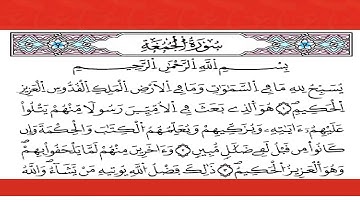 سُورَةُ الْجُمُعَةِ
بِسْمِ اللَّهِ الرَّحْمَٰنِ الرَّحِيمِ
يُسَبِّحُ لِلَّهِ مَا فِي السَّمَٰوَٰتِ وَمَا فِي الْأَرْضِ الْمَلِكِ الْقُدُّوسِ الْعَزِيزِ
الْحَكِيمِ ۝ هُوَ الَّذِي بَعَثَ فِي الْأُمِّيِّينَ رَسُولًا مِّنْهُمْ يَتْلُوا
عَلَيْهِمْ ءَايَٰتِهِ وَيُزَكِّيهِمْ وَيُعَلِّمُهُمُ الْكِتَٰبَ وَالْحِكْمَةَ وَإِن
كَانُوا مِن قَبْلُ لَفِي ضَلَٰلٍ مُّبِينٍ ۝ وَءَاخَرِينَ مِنْهُمْ لَمَّا يَلْحَقُوا بِهِمْ
وَهُوَ الْعَزِيزُ الْحَكِيمُ ۝ ذَٰلِكَ فَضْلُ اللَّهِ يُؤْتِيهِ مَن يَشَاءُ وَاللَّهُ